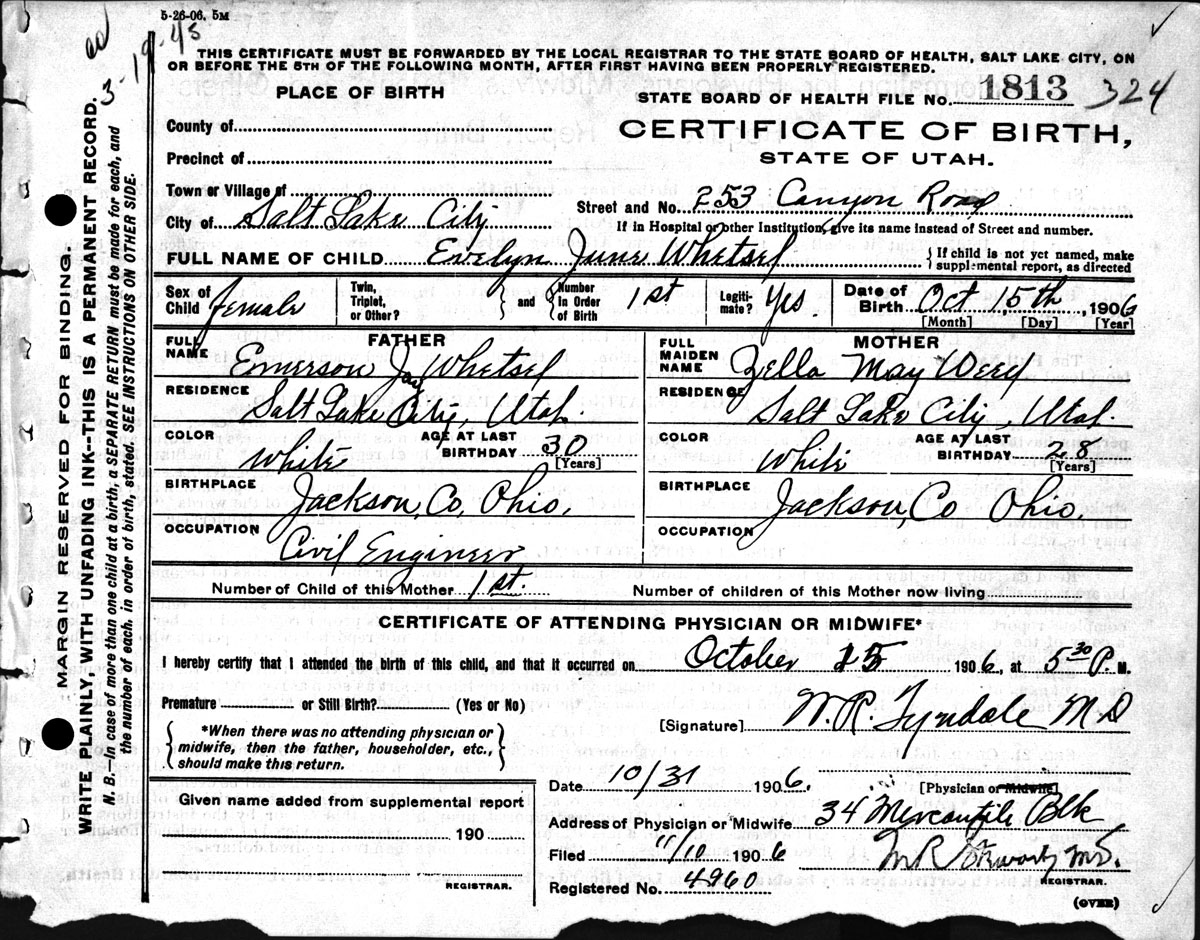 5-26-06. 5M
ed 3-19-45
THIS CERTIFICATE MUST BE FORWARDED BY THE LOCAL REGISTRAR TO THE STATE BOARD OF HEALTH, SALT LAKE CITY, ON
OR BEFORE THE 5TH OF THE FOLLOWING MONTH, AFTER FIRST HAVING BEEN PROPERLY REGISTERED.
PLACE OF BIRTH
STATE BOARD OF HEALTH FILE NO. 1813 324
County of
CERTIFICATE OF BIRTH,
Precinct of
STATE OF UTAH.
Town or Village of
Street and No. 253 Canyon Road
City of Salt Lake City
If in Hospital or other Institution, give its name instead of Street and number.
FULL NAME OF CHILD Evelyn June Whetsel { If child is not yet named, make
supplemental report, as directed
Sex of Child female Twin, Triplet, or Other? } and { Number in Order of Birth 1st Legiti-mate? Yes. Date of Birth Oct 15th, 1906
[Month] [Day] [Year]
FATHER
MOTHER
FULL NAME Emerson Jay Whetsel
FULL MAIDEN NAME Zella May Weed
RESIDENCE Salt Lake City, Utah.
RESIDENCE Salt Lake City, Utah.
COLOR White AGE AT LAST BIRTHDAY 30 [Years]
COLOR White AGE AT LAST BIRTHDAY 28 [Years]
BIRTHPLACE Jackson, Co, Ohio,
BIRTHPLACE Jackson, Co Ohio,
OCCUPATION Civil Engineer
OCCUPATION
Number of Child of this Mother 1st. Number of children of this Mother now living
CERTIFICATE OF ATTENDING PHYSICIAN OR MIDWIFE*
I hereby certify that I attended the birth of this child, and that it occurred on October 15 1906, at 5 30 P. M.
Premature or Still Birth? (Yes or No)
[Signature] W. R. Tyndale M.D
*When there was no attending physician or
midwife, then the father, householder, etc.,
should make this return.
Date 10/31 1906.
[Physician or Midwife]
Given name added from supplemental report
190
REGISTRAR.
Address of Physician or Midwife 34 Mercantile Blk
Filed 11/10 1906
REGISTRAR.
Registered No. 4960
(OVER)
MARGIN RESERVED FOR BINDING.
WRITE PLAINLY, WITH UNFADING INK--THIS IS A PERMANENT RECORD.
N. B.—In case of more than one child at a birth, a SEPARATE RETURN must be made for each, and
the number of each, in order of birth, stated SEE INSTRUCTIONS ON OTHER SIDE.